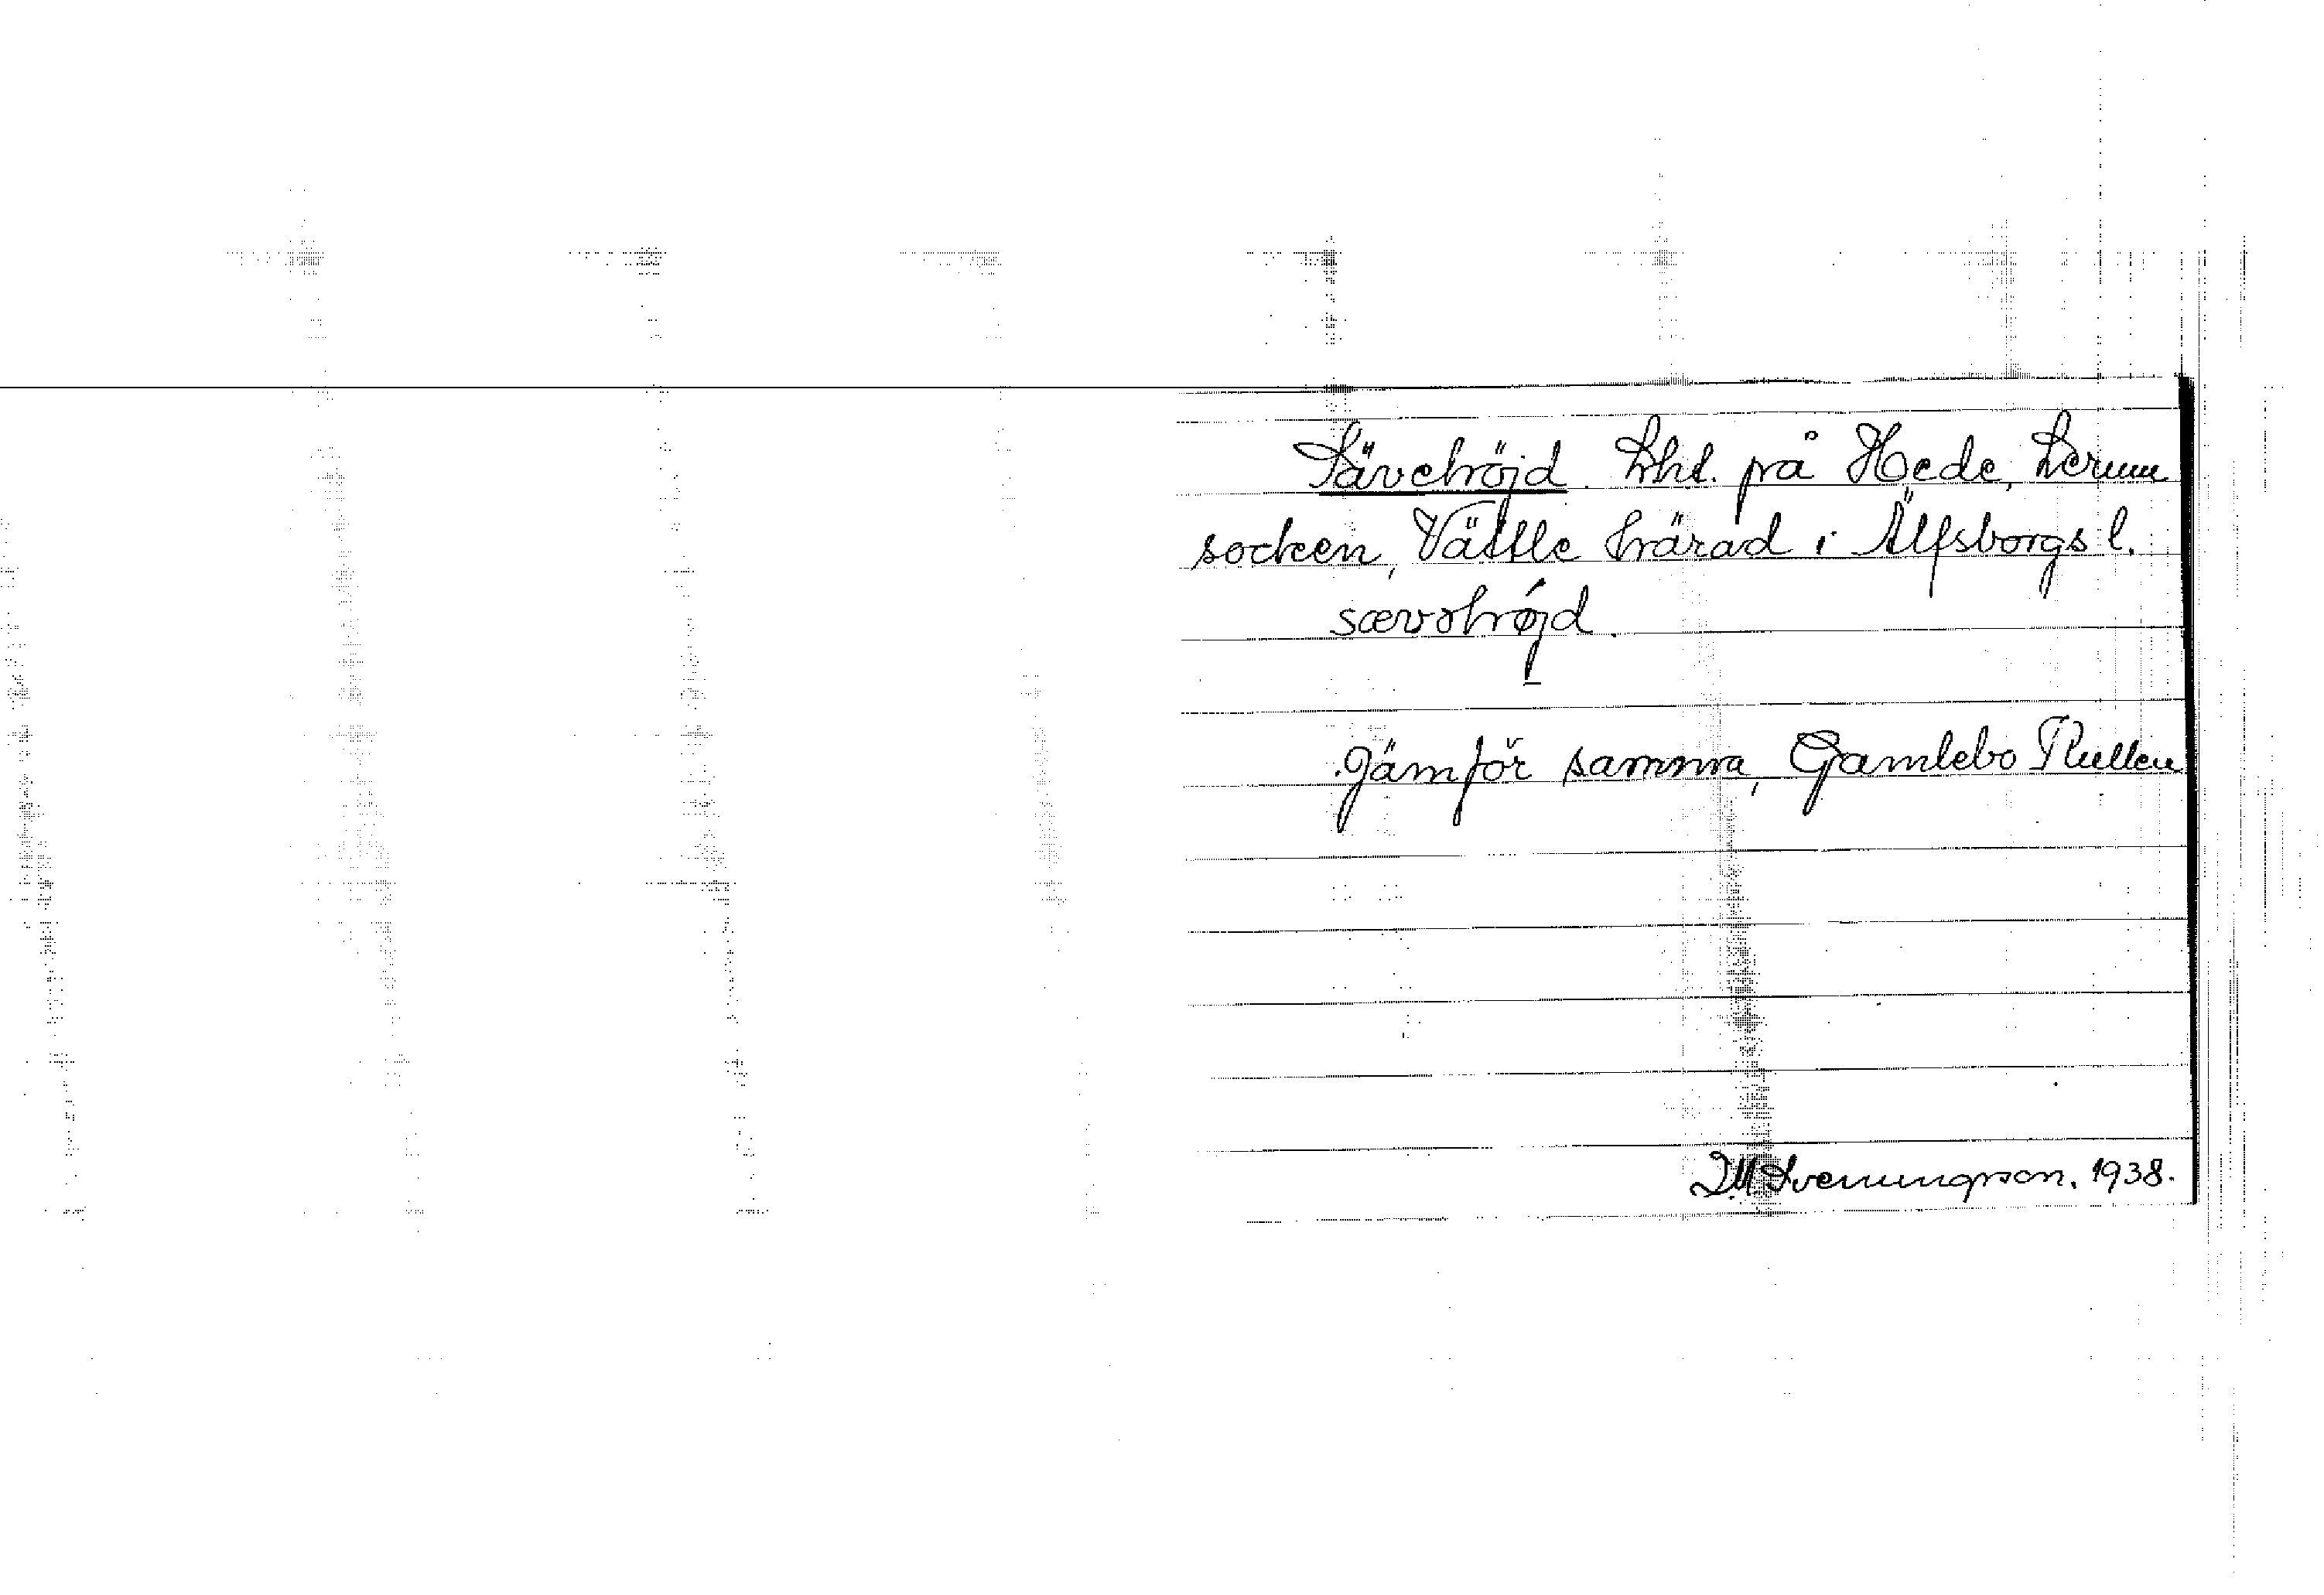 Sävehöjd. Lht. på Hede, Lerum
socken, Vättle härad i Älfsborgs l.
sævəhøjd.
Jämför samma, Gamlebo Kullen
D M Svenungsson. 1938.